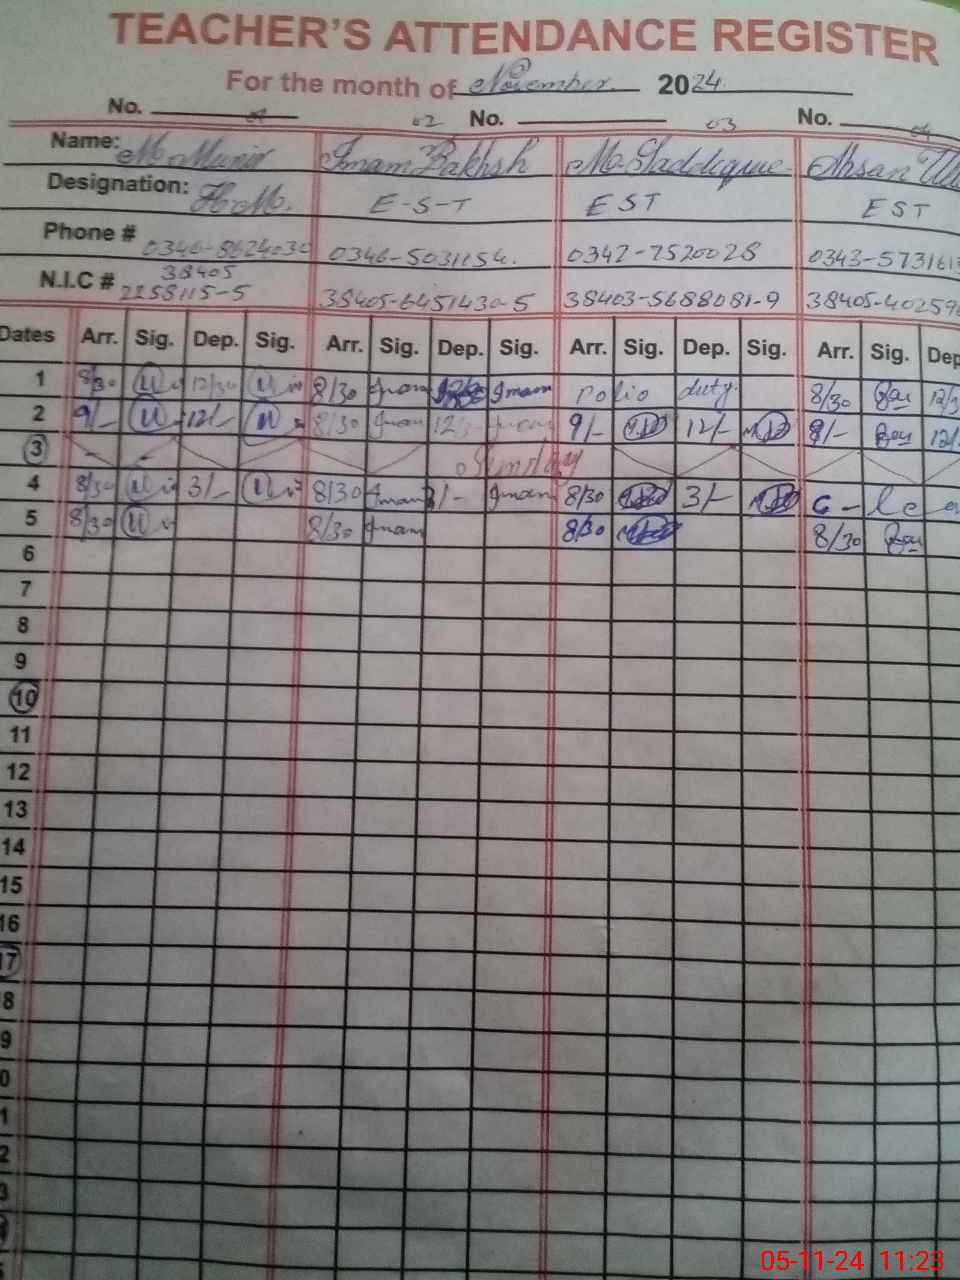 TEACHER'S ATTENDANCE REGISTER
For the month of November 2024
No. 01 02 No. 03 No. 04
Name: M. Munir Imam Bakhsh M. Ahsan
Designation: H.M. E-S-T EST EST
Phone # 0346-8624030 0346-5031154. 0342-7520028 0343-573161
N.I.C # 38405 2258115-5 38405-6451430-5 38403-5688081-9 38405-40259
Dates Arr. Sig. Dep. Sig. Arr. Sig. Dep. Sig. Arr. Sig. Dep. Sig. Arr. Sig. Dep
1 8/30 12/30 8/30 Imam Imam Polio duty 8/30 12/3
2 9/- 12/- 8/30 Imam 12/- Imam 9/- 12/- 8/- 12/
3 Sunday
4 8/30 3/- 8/30 Imam 3/- Imam 8/30 3/- C - lea
5 8/30 8/30 Imam 8/30 8/30
6
7
8
9
10
11
12
13
14
15
16
17
8
9
0
1
2
3
4
05-11-24 11:23